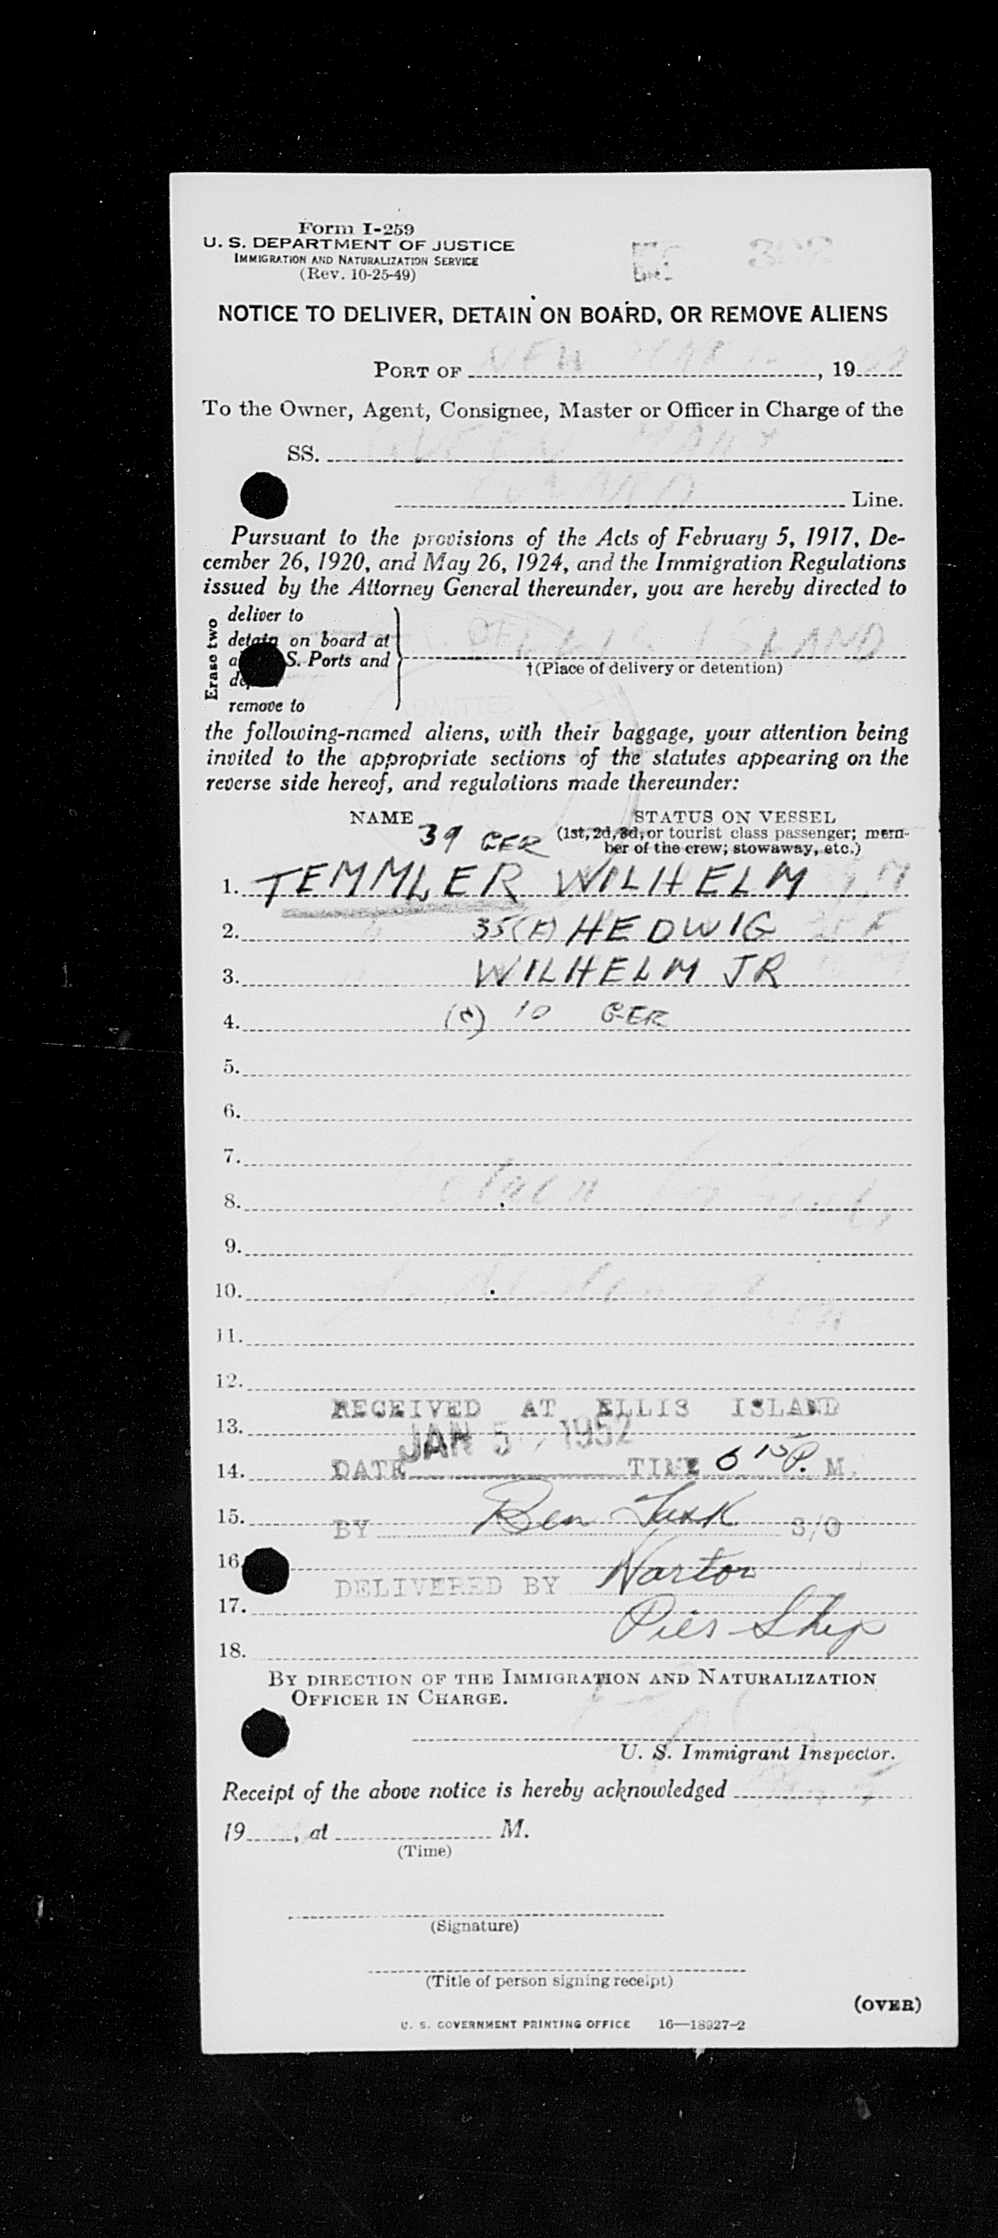 Form I-259
U. S. DEPARTMENT OF JUSTICE
IMMIGRATION AND NATURALIZATION SERVICE
(Rev. 10-25-49)
NOTICE TO DELIVER, DETAIN ON BOARD, OR REMOVE ALIENS
PORT OF NEW , 19
To the Owner, Agent, Consignee, Master or Officer in Charge of the
SS. QUEEN MARY
CUNARD Line.
Pursuant to the provisions of the Acts of February 5, 1917, De-
cember 26, 1920, and May 26, 1924, and the Immigration Regulations
issued by the Attorney General thereunder, you are hereby directed to
Erase two
deliver to
detain on board at
S. Ports and
remove to
ELLIS ISLAND
†(Place of delivery or detention)
the following-named aliens, with their baggage, your attention being
invited to the appropriate sections of the statutes appearing on the
reverse side hereof, and regulations made thereunder:
NAME STATUS ON VESSEL
39 GER (1st, 2d, 3d, or tourist class passenger; mem-
ber of the crew; stowaway, etc.)
1. TEMMLER WILHELM
2. 35 (E) HEDWIG
3. WILHELM JR
4. (C) 10 GER
5.
6.
7.
8.
9.
10.
11.
12.
RECEIVED AT ELLIS ISLAND
13.
JAN 5 1952
14. DATE TIME 6 15 P. M.
15. BY Ben S/O
16.
DELIVERED BY
17.
Pier Ship
18.
BY DIRECTION OF THE IMMIGRATION AND NATURALIZATION
OFFICER IN CHARGE.
U. S. Immigrant Inspector.
Receipt of the above notice is hereby acknowledged
19 , at M.
(Time)
(Signature)
(Title of person signing receipt)
(OVER)
U. S. GOVERNMENT PRINTING OFFICE 16—18927-2